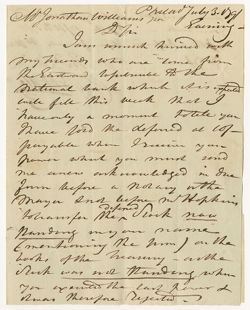 Mr Jonathan Williams Jnr Philad July 3. 1
Evening -
D Sir
I am much hurried with
my friends who are come from
the Eastward to subscribe to the
National bank which it is
quite full this week that I
have only a moment to tell you
I have sold the deferred at
payable when I receive your
Power which you must send
me anew acknowledged in due
form before a Notary or the
Mayor & not before Mr Hopkins
to transfer the deferred Stock now
standing in your name
(mentioning the sum) on the
books of the Treasury - as the
Stock was not standing when
you executed the last power &
it was therefore rejected -